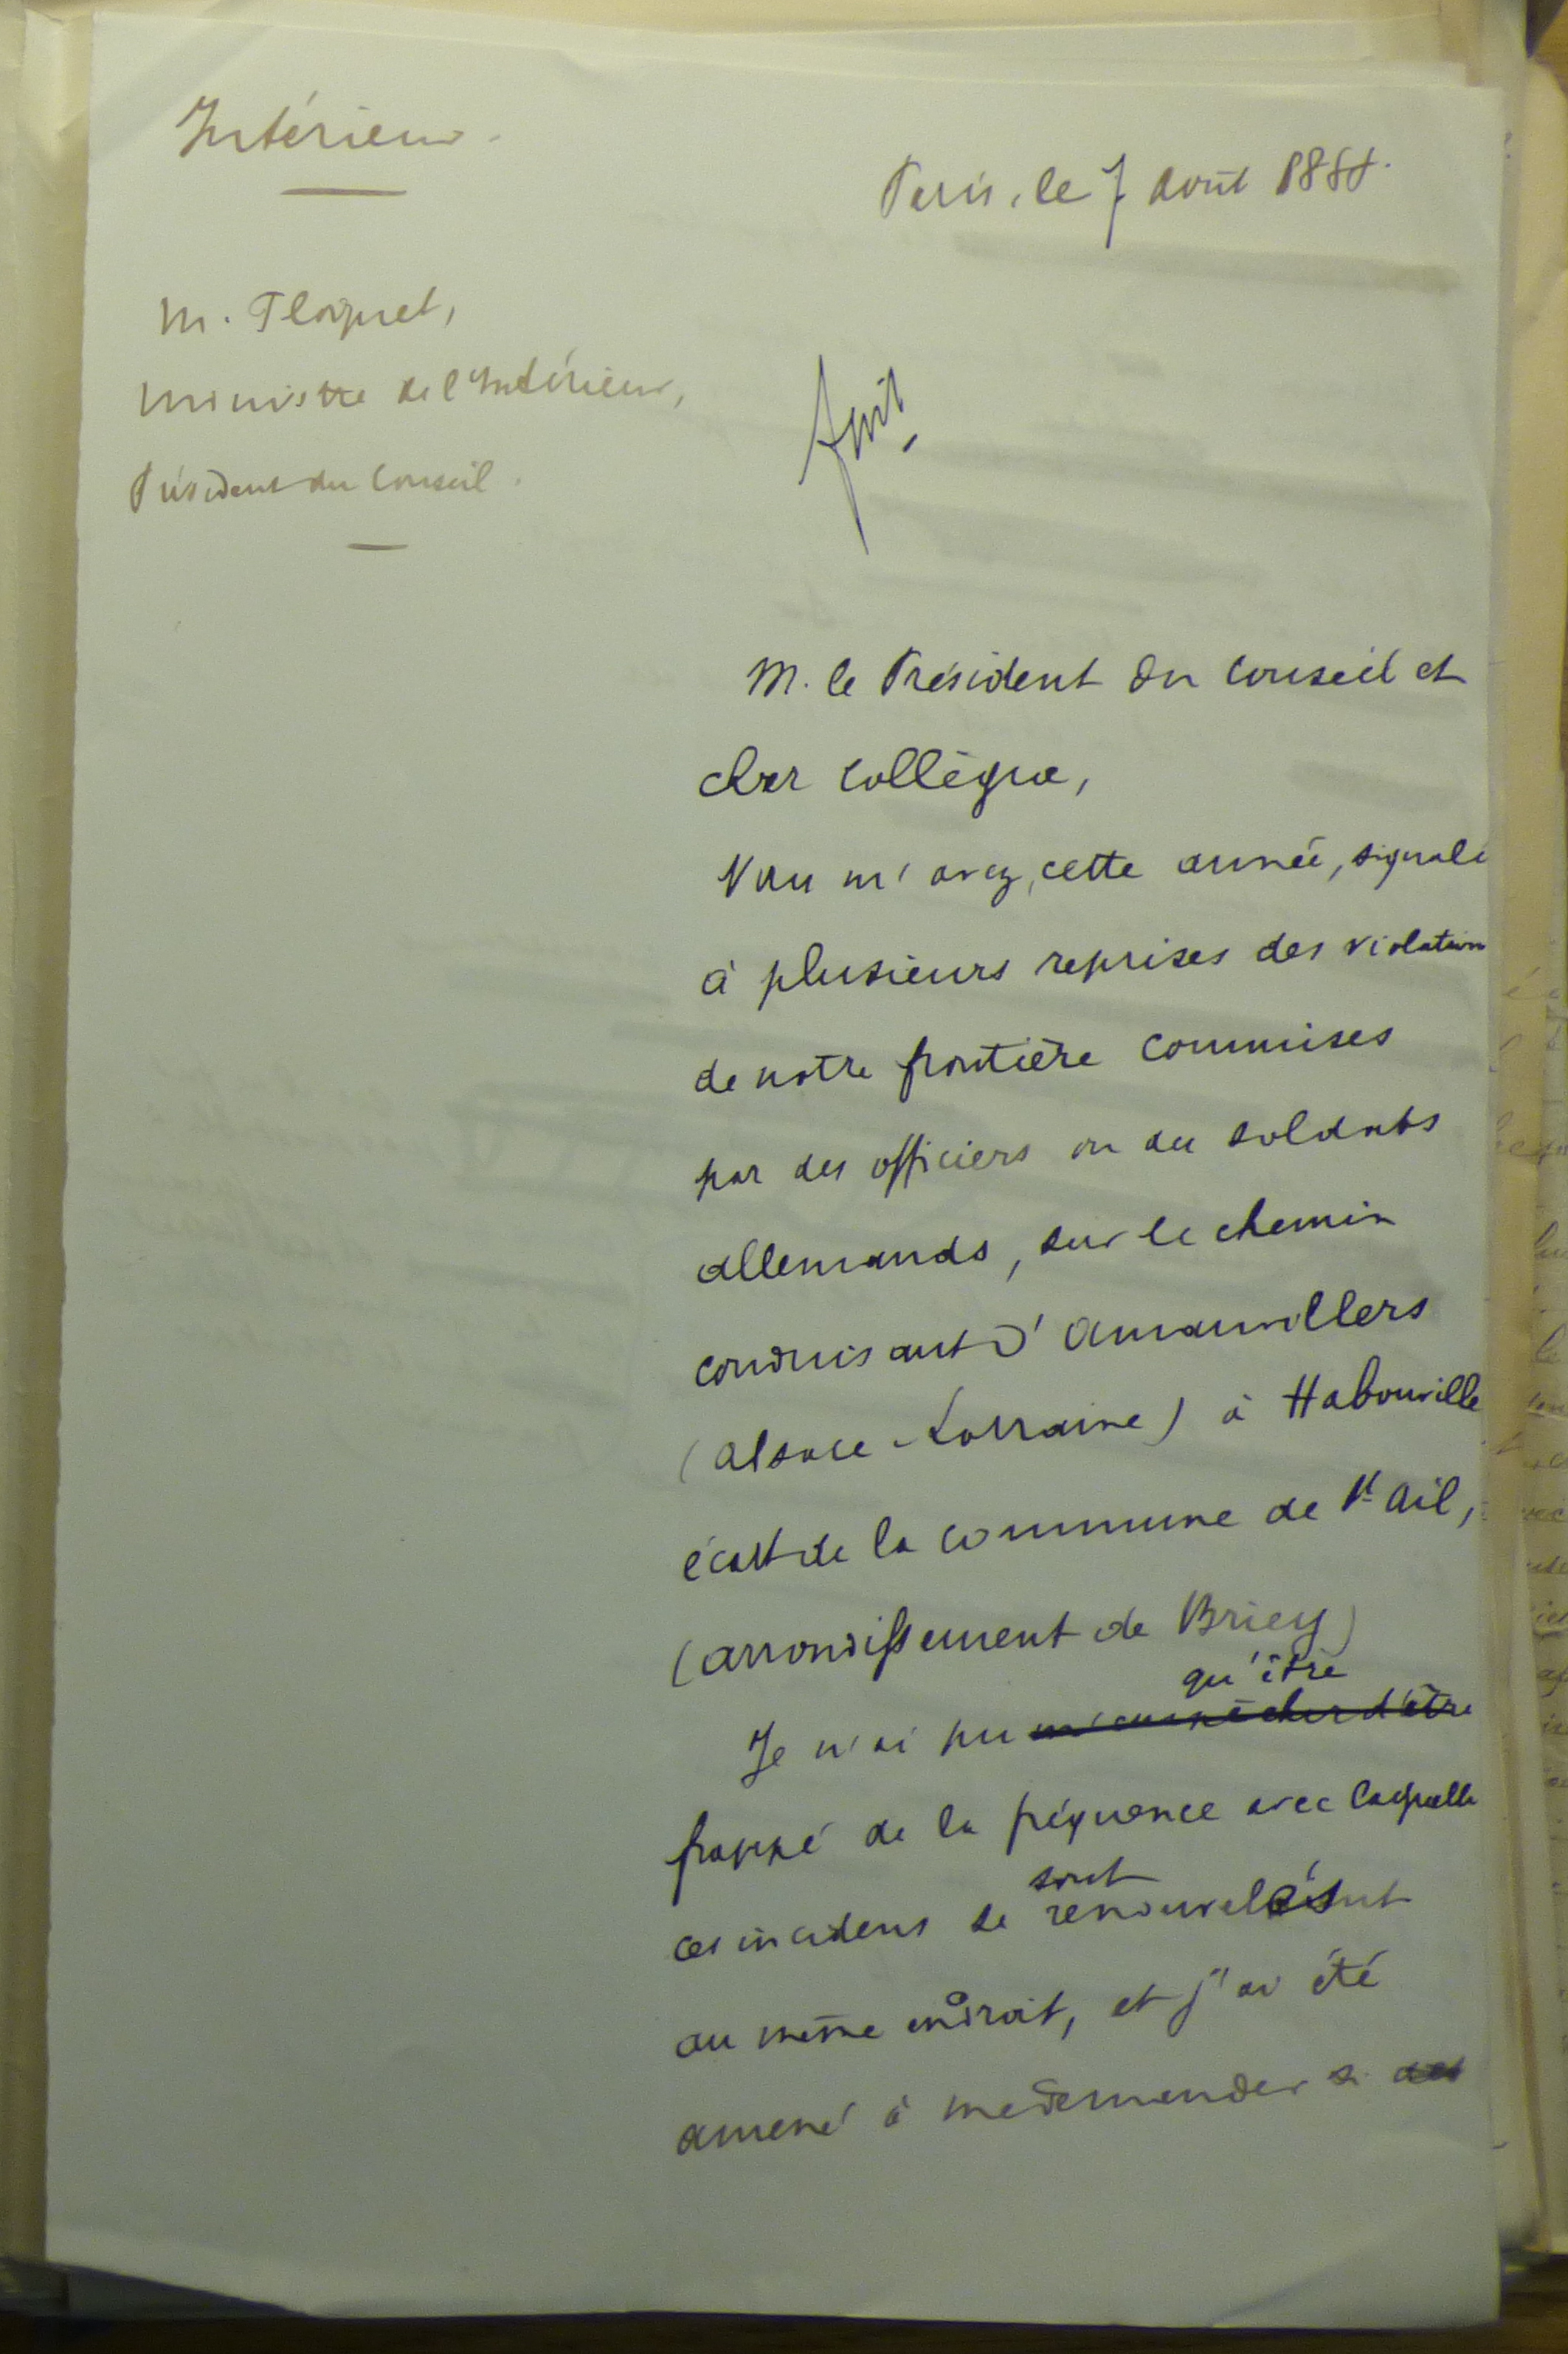 Intérieur.
Paris, le 7 août 1888.
M. Floquet,
Ministre de l'Intérieur,
Président du Conseil.
M. le Président du Conseil et
cher collègue,
Vous m'avez, cette année, signalé
à plusieurs reprises des violations
de notre frontière commises
par des officiers ou des soldats
allemands, sur le chemin
conduisant d'Amanvillers
(Alsace-Lorraine) à Habonville
écart de la commune de St Ail,
(arrondissement de Briey)
qu'être
Je n'ai pu m'empêcher d'être
frappé de la fréquence avec laquelle
sont
ces incidens se renouvelés
au même endroit, et j'ai été
amené à me demander si des